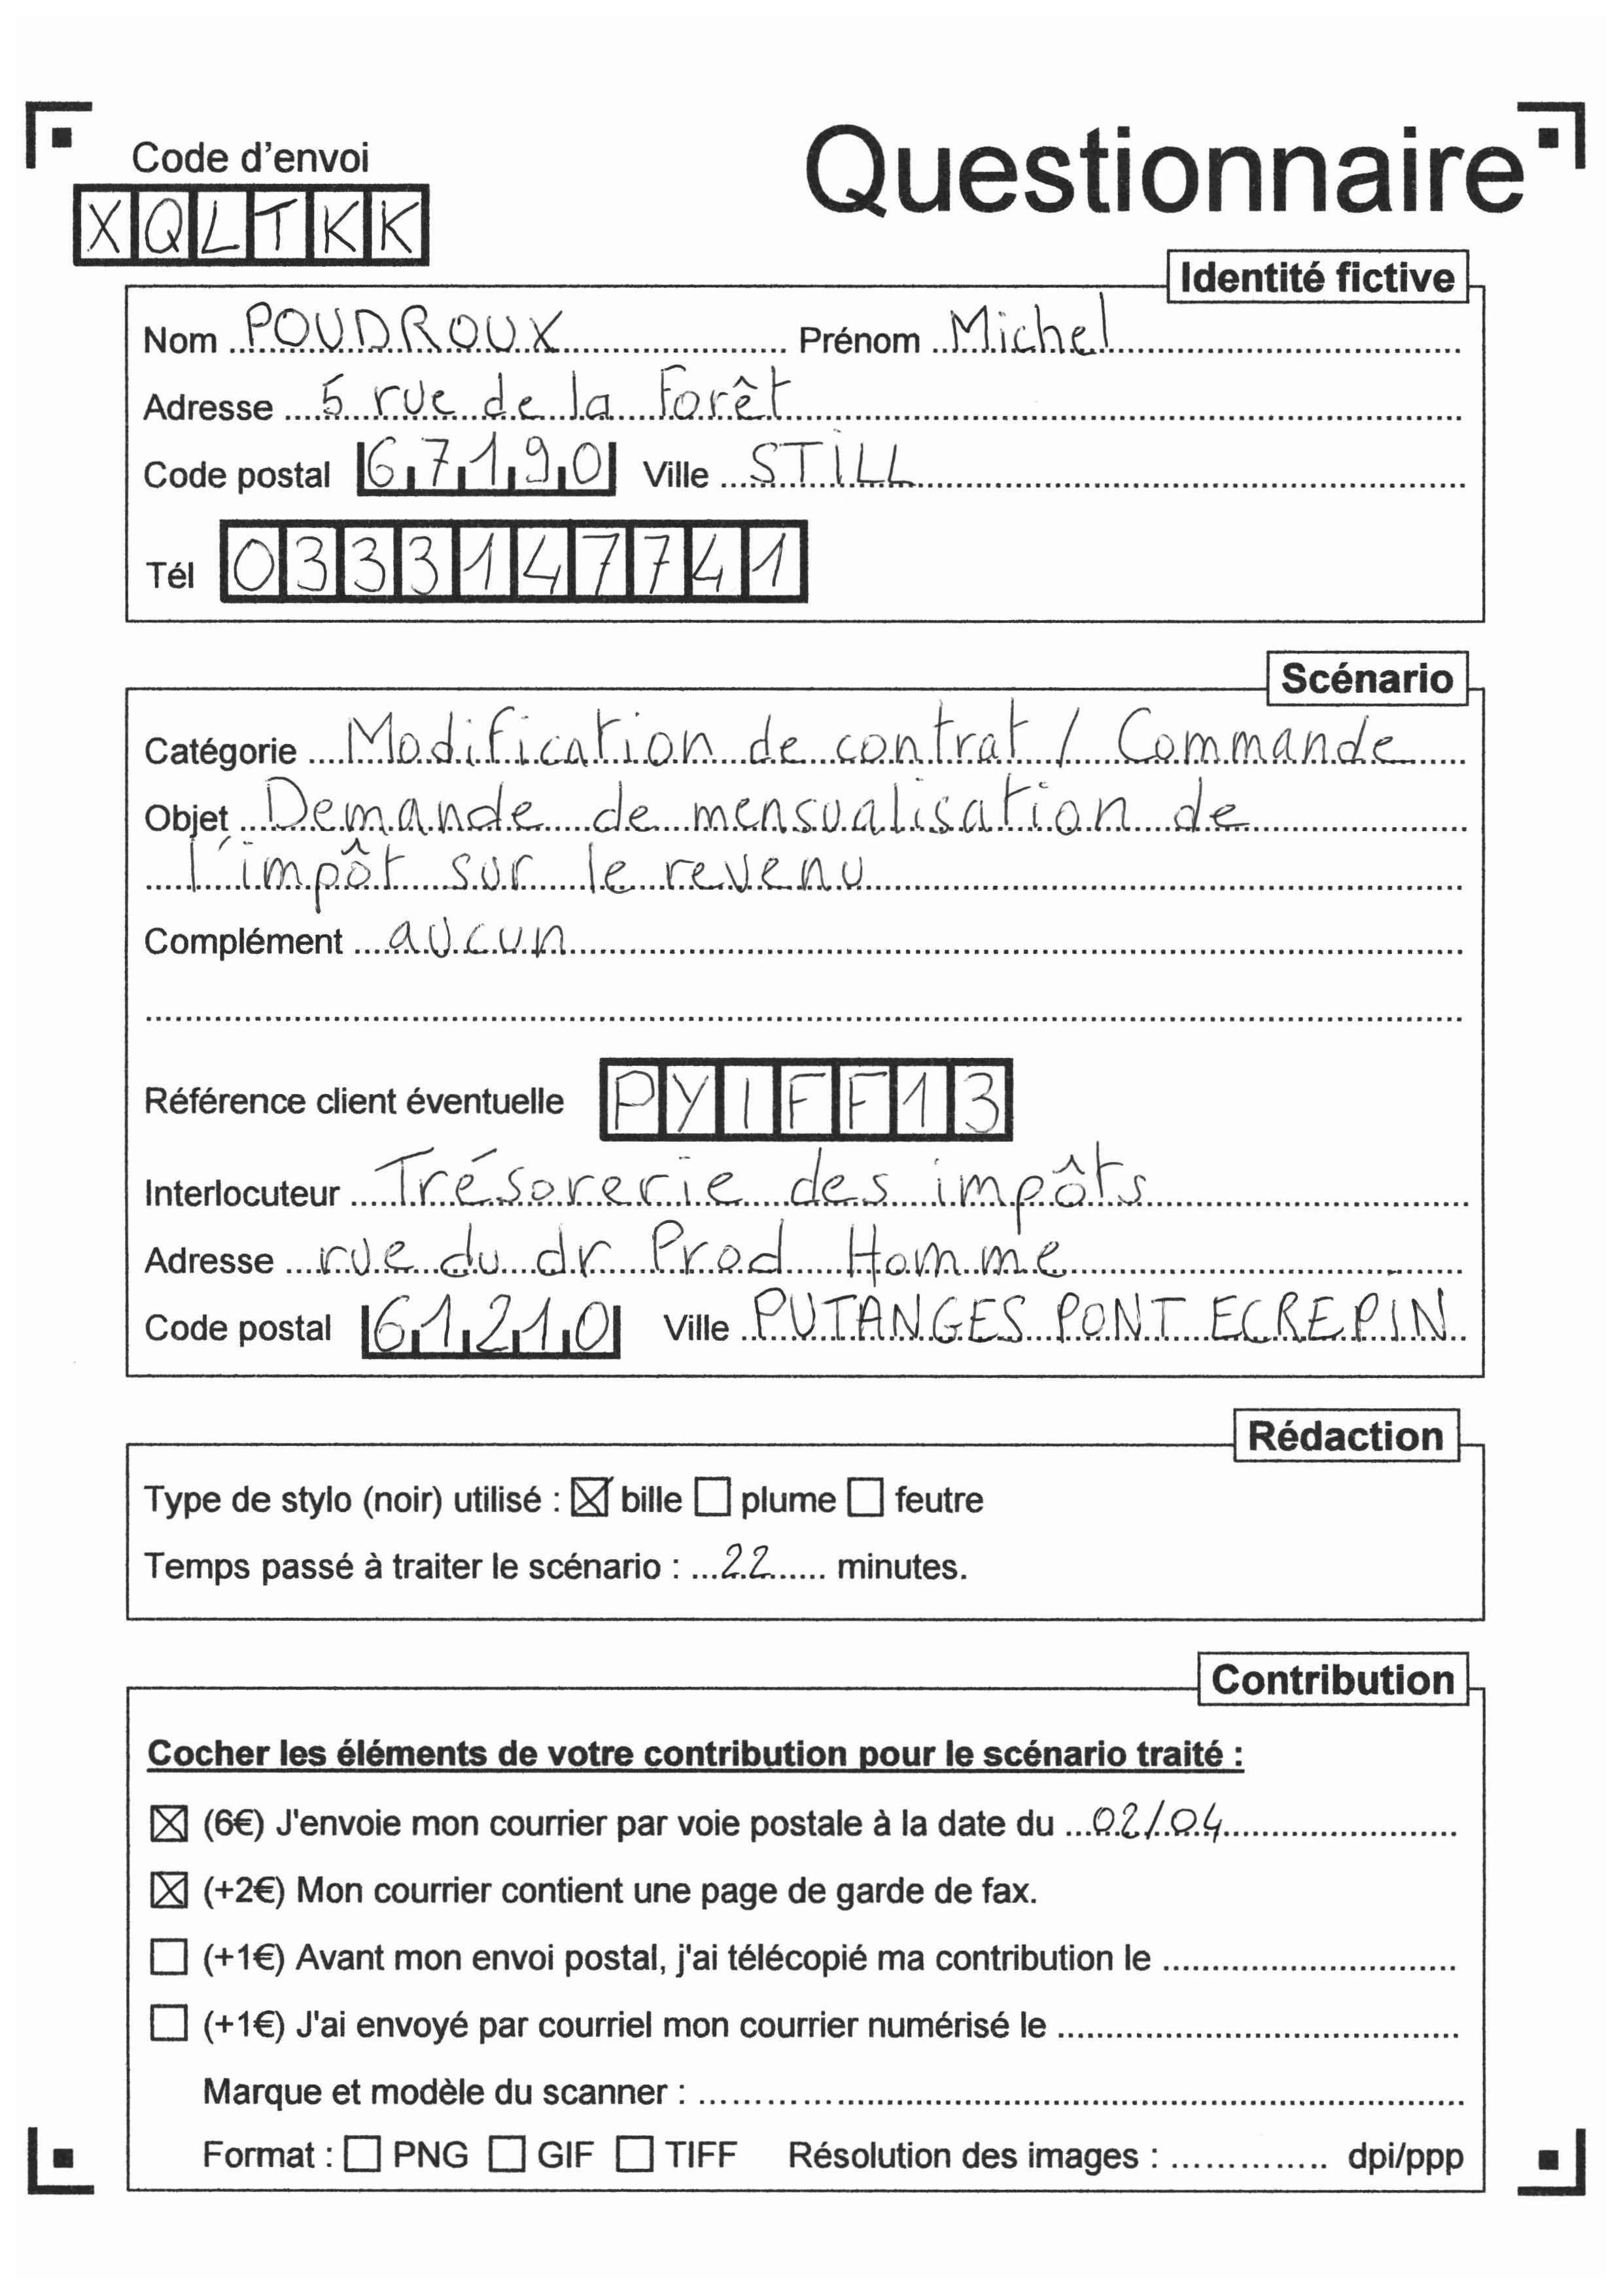 Code d'envoi
Questionnaire
XQLTKK
Identité fictive
Nom POUDROUX Prénom Michel
Adresse 5 rue de la Forêt
Code postal 67190 Ville STILL
Tél 0333147741
Scénario
Catégorie Modification de contrat / Commande
Objet Demande de mensualisation de
l'impôt sur le revenu
Complément aucun
Référence client éventuelle PYIFF13
Interlocuteur Trésorerie des impôts
Adresse rue du dr Prod Homme
Code postal 61210 Ville PUTANGES PONT ECREPIN
Rédaction
Type de stylo (noir) utilisé : ☒ bille ☐ plume ☐ feutre
Temps passé à traiter le scénario : 22 minutes.
Contribution
Cocher les éléments de votre contribution pour le scénario traité :
☒ (6€) J'envoie mon courrier par voie postale à la date du 02/04
☒ (+2€) Mon courrier contient une page de garde de fax.
☐ (+1€) Avant mon envoi postal, j'ai télécopié ma contribution le
☐ (+1€) J'ai envoyé par courriel mon courrier numérisé le
Marque et modèle du scanner :
Format : ☐ PNG ☐ GIF ☐ TIFF Résolution des images : dpi/ppp